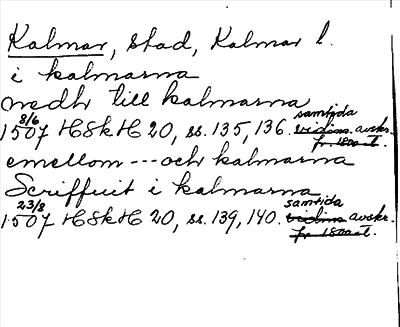 Kalmar, stad, Kalmar l.
i kalmarna
nedh till kalmarna
8/6 samtida
1507 HSkH 20, ss. 135, 136. vidim. avskr.
fr. 1800-t.
emellom --- och kalmarna
Scriffuit i kalmarna
23/8 samtida
1507 HSkH 20, ss. 139, 140. vidim. avskr.
fr. 1800-t.